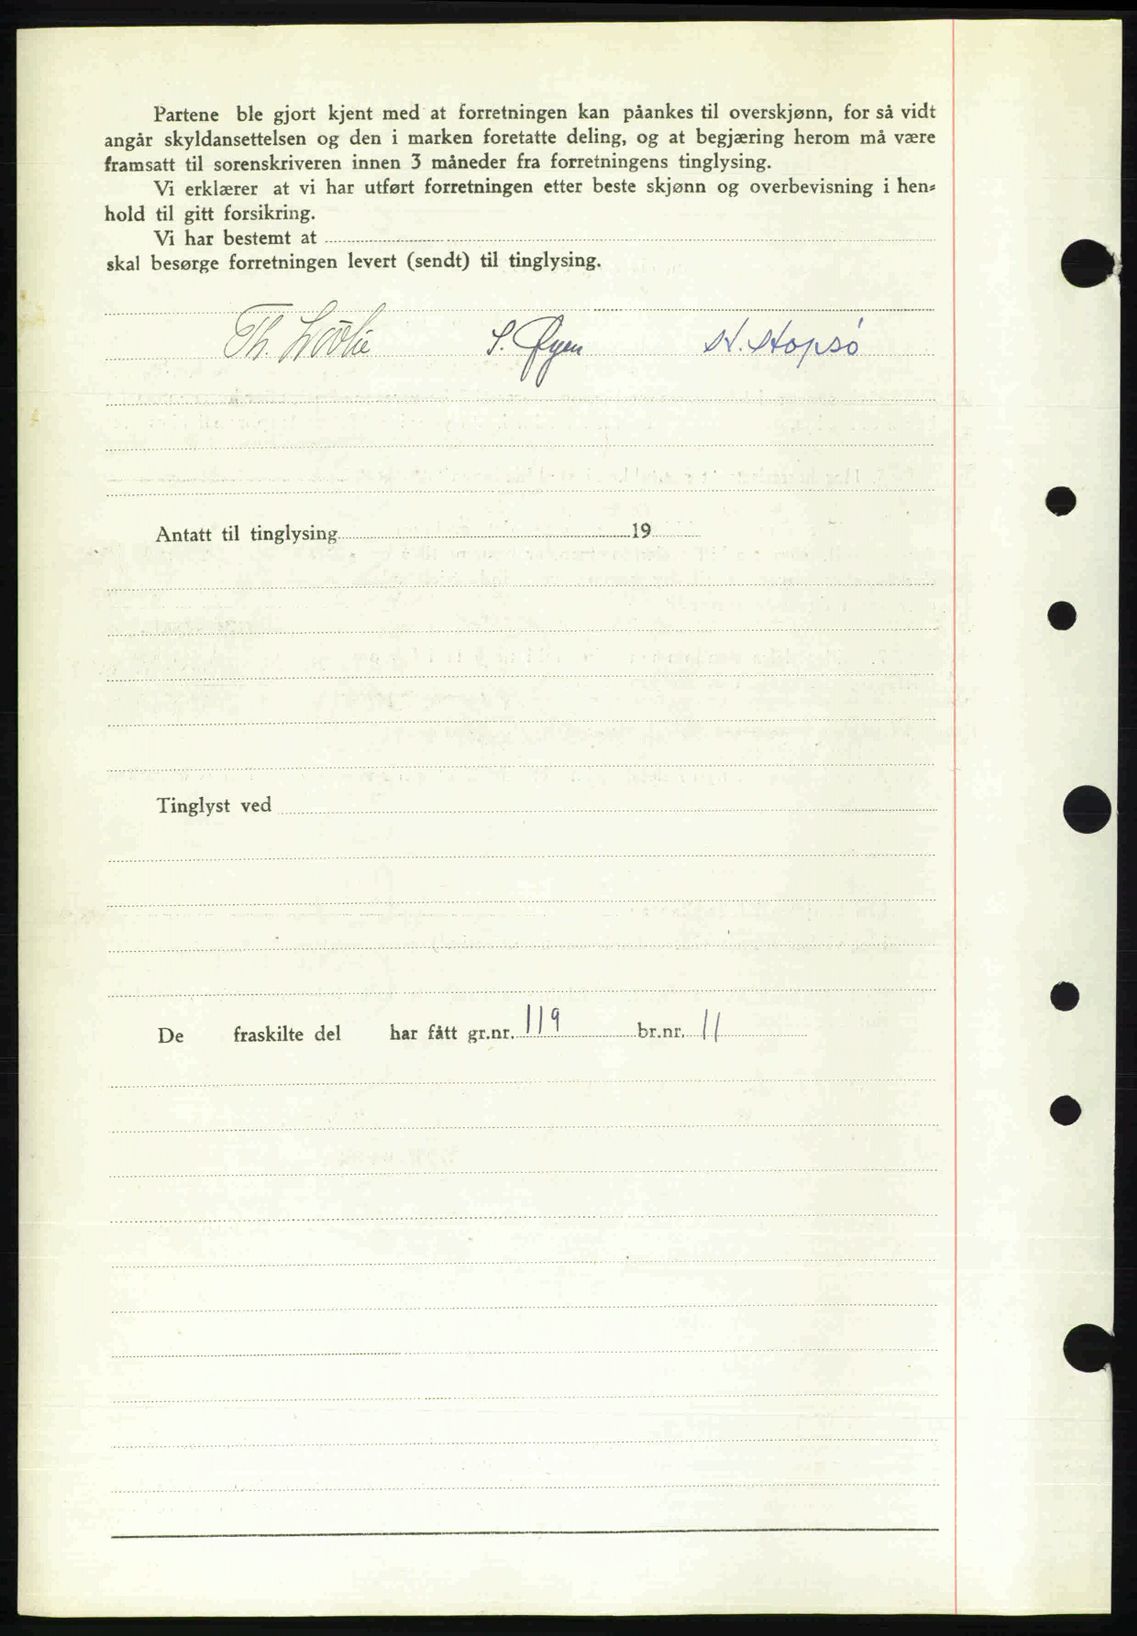 Partene ble gjort kjent med at forretningen kan påankes til overskjønn, for så vidt
angår skyldansettelsen og den i marken foretatte deling, og at begjæring herom må være
framsatt til sorenskriveren innen 3 måneder fra forretningens tinglysing.
Vi erklærer at vi har utført forretningen etter beste skjønn og overbevisning i hen=
hold til gitt forsikring.
Vi har bestemt at
skal besørge forretningen levert (sendt) til tinglysing.
Th. S. Øyen K. Hopsø
Antatt til tinglysing 19
Tinglyst ved
De fraskilte del har fått gr.nr. 119 br.nr. 11